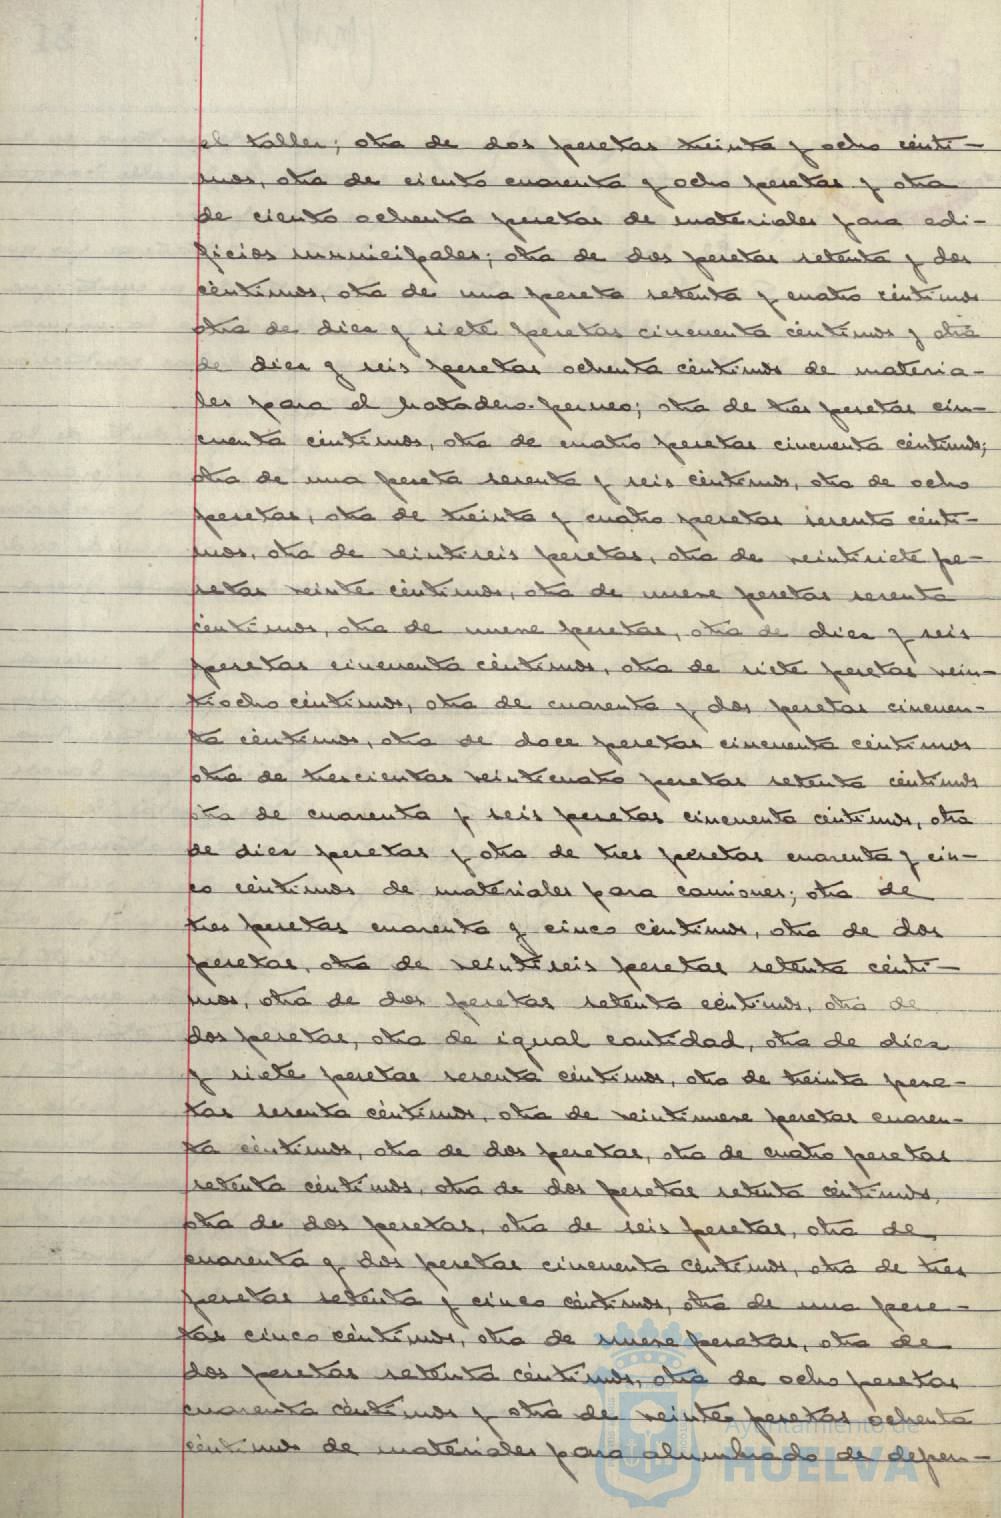 el taller; otra de dos pesetas treinta y ocho cénti-
mos, otra de ciento cuarenta y ocho pesetas y otra
de ciento ochenta pesetas de materiales para edi-
ficios municipales; otra de dos pesetas setenta y dos
céntimos, otra de una peseta setenta y cuatro céntimos
otra de diez y siete pesetas cincuenta céntimos y otra
de diez y seis pesetas ochenta céntimos de materia-
les para el matadero; otra de tres pesetas cin-
cuenta céntimos, otra de cuatro pesetas cincuenta céntimos;
otra de una peseta sesenta y seis céntimos, otra de ocho
pesetas, otra de treinta y cuatro pesetas sesenta cénti-
mos, otra de veintiseis pesetas, otra de veintisiete pe-
setas veinte céntimos, otra de nueve pesetas sesenta
céntimos, otra de nueve pesetas, otra de diez y seis
pesetas cincuenta céntimos, otra de siete pesetas vein-
tiocho céntimos, otra de cuarenta y dos pesetas cincuen-
ta céntimos, otra de doce pesetas cincuenta céntimos
otra de trescientas veinticuatro pesetas setenta céntimos
otra de cuarenta y seis pesetas cincuenta céntimos, otra
de diez pesetas y otra de tres pesetas cuarenta y cin-
co céntimos de materiales para camiones; otra de
tres pesetas cuarenta y cinco céntimos, otra de dos
pesetas, otra de veintiseis pesetas setenta cénti-
mos, otra de dos pesetas setenta céntimos, otra de
dos pesetas, otra de igual cantidad, otra de diez
y siete pesetas sesenta céntimos, otra de treinta pese-
tas sesenta céntimos, otra de veintinueve pesetas cuaren-
ta céntimos, otra de dos pesetas, otra de cuatro pesetas
setenta céntimos, otra de dos pesetas setenta céntimos,
otra de dos pesetas, otra de seis pesetas, otra de
cuarenta y dos pesetas cincuenta céntimos, otra de tres
pesetas setenta y cinco céntimos, otra de una pese-
tas cinco céntimos, otra de nueve pesetas, otra de
dos pesetas setenta céntimos, otra de ocho pesetas
cuarenta céntimos y otra de veinte pesetas ochenta
céntimos de materiales para alumbrado de depen-
Ayuntamiento de
HUELVA